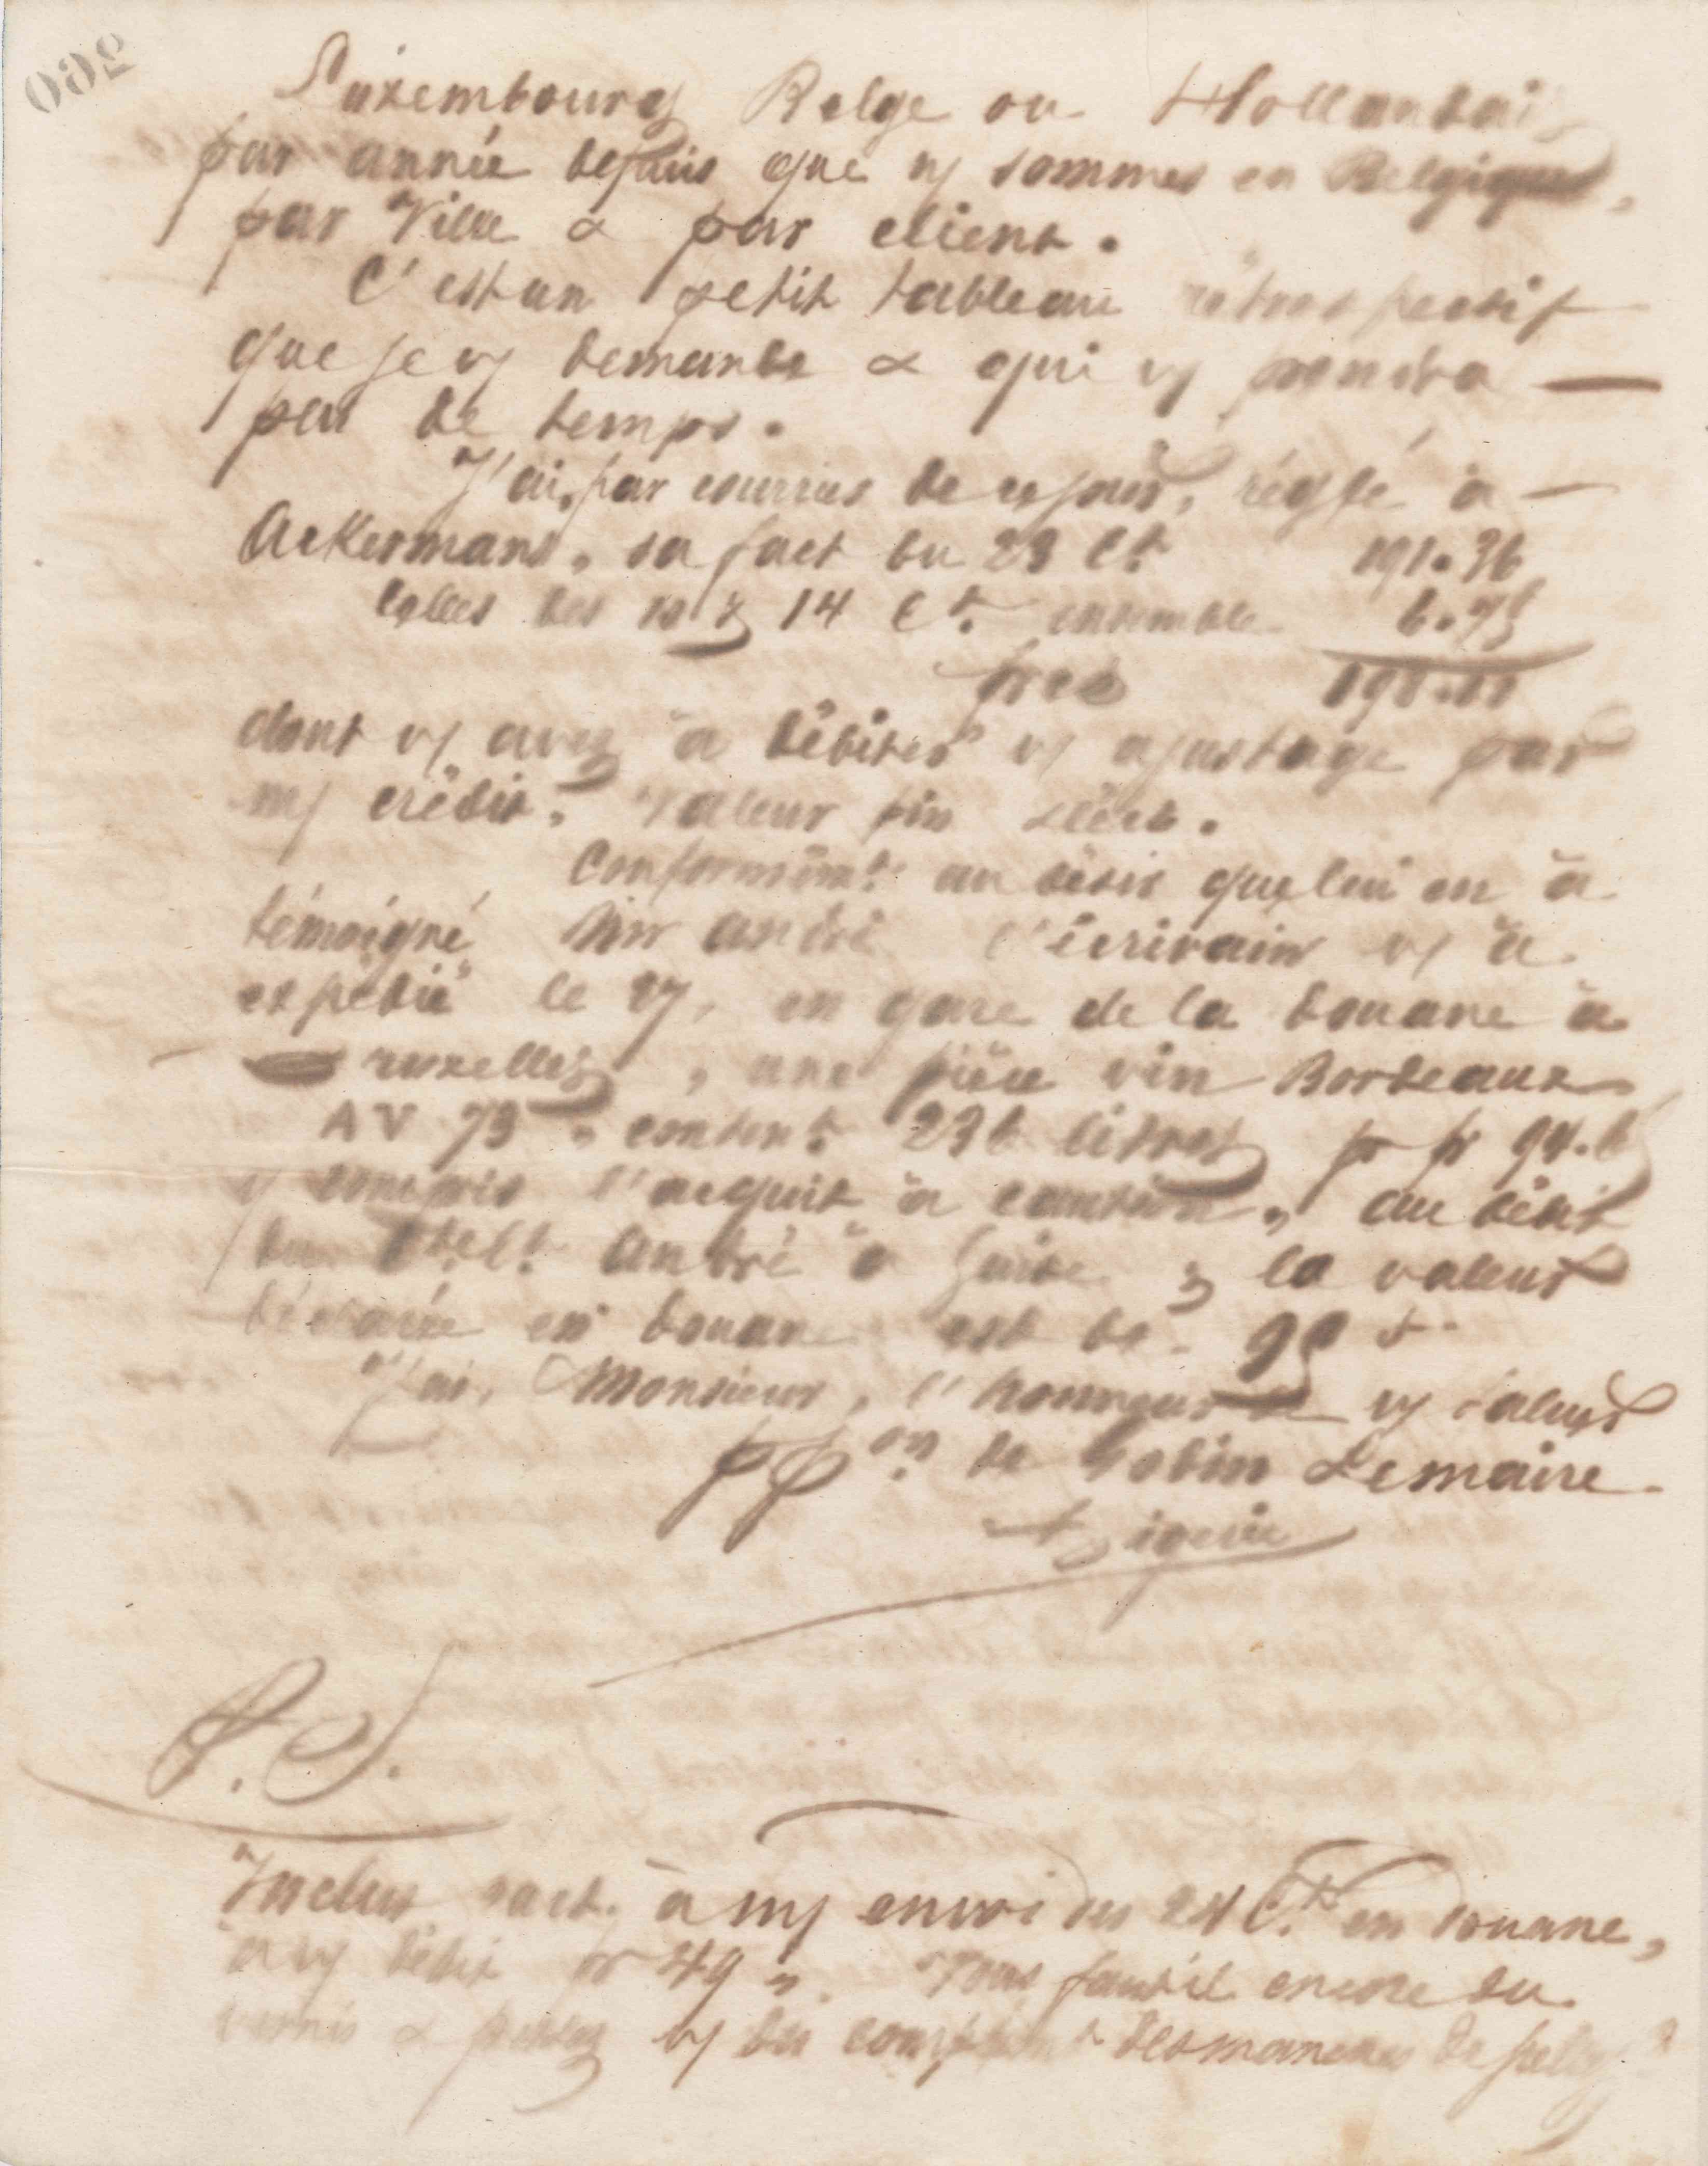 260
Luxembourg Belge ou Hollandais
par année depuis que ns sommes en Belgique,
par Ville & par client.
C'est un petit tableau rétrospectif
que je vs demande & qui vs prendra
peu de temps.
J'ai, par courrier de ce jour, réglé à
Ackermans, sa fact du 23 Ct 191.36
Celles des 10 & 14 Ct. ensemble 6.75
frcs 198.11
dont vs avez à débiter vs ajustage par
ns crédit. Valeur fin
Conformémt au désir que lui en a
témoigné Mr André l'écrivain vs a
expédié le 27, en gare de la douane à
Bruxelles, une pièce vin Bordeaux
AV 73, content 236 litres pr fr
y compris l'acquit à caution, au débit
André à Guise; la valeur
en douane est de
J'ai, Monsieur, l'honneur de vs saluer
ppon de Godin Lemaire
P.S.
Inclus fact. à ns envoi du 24 Ct en douane,
à vs débit fr 49 ". Vous faut-il encore du
vernis &